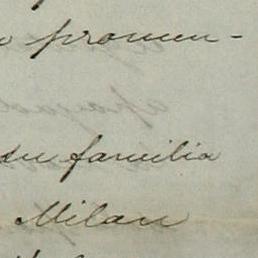 promun-
su familia
Milan